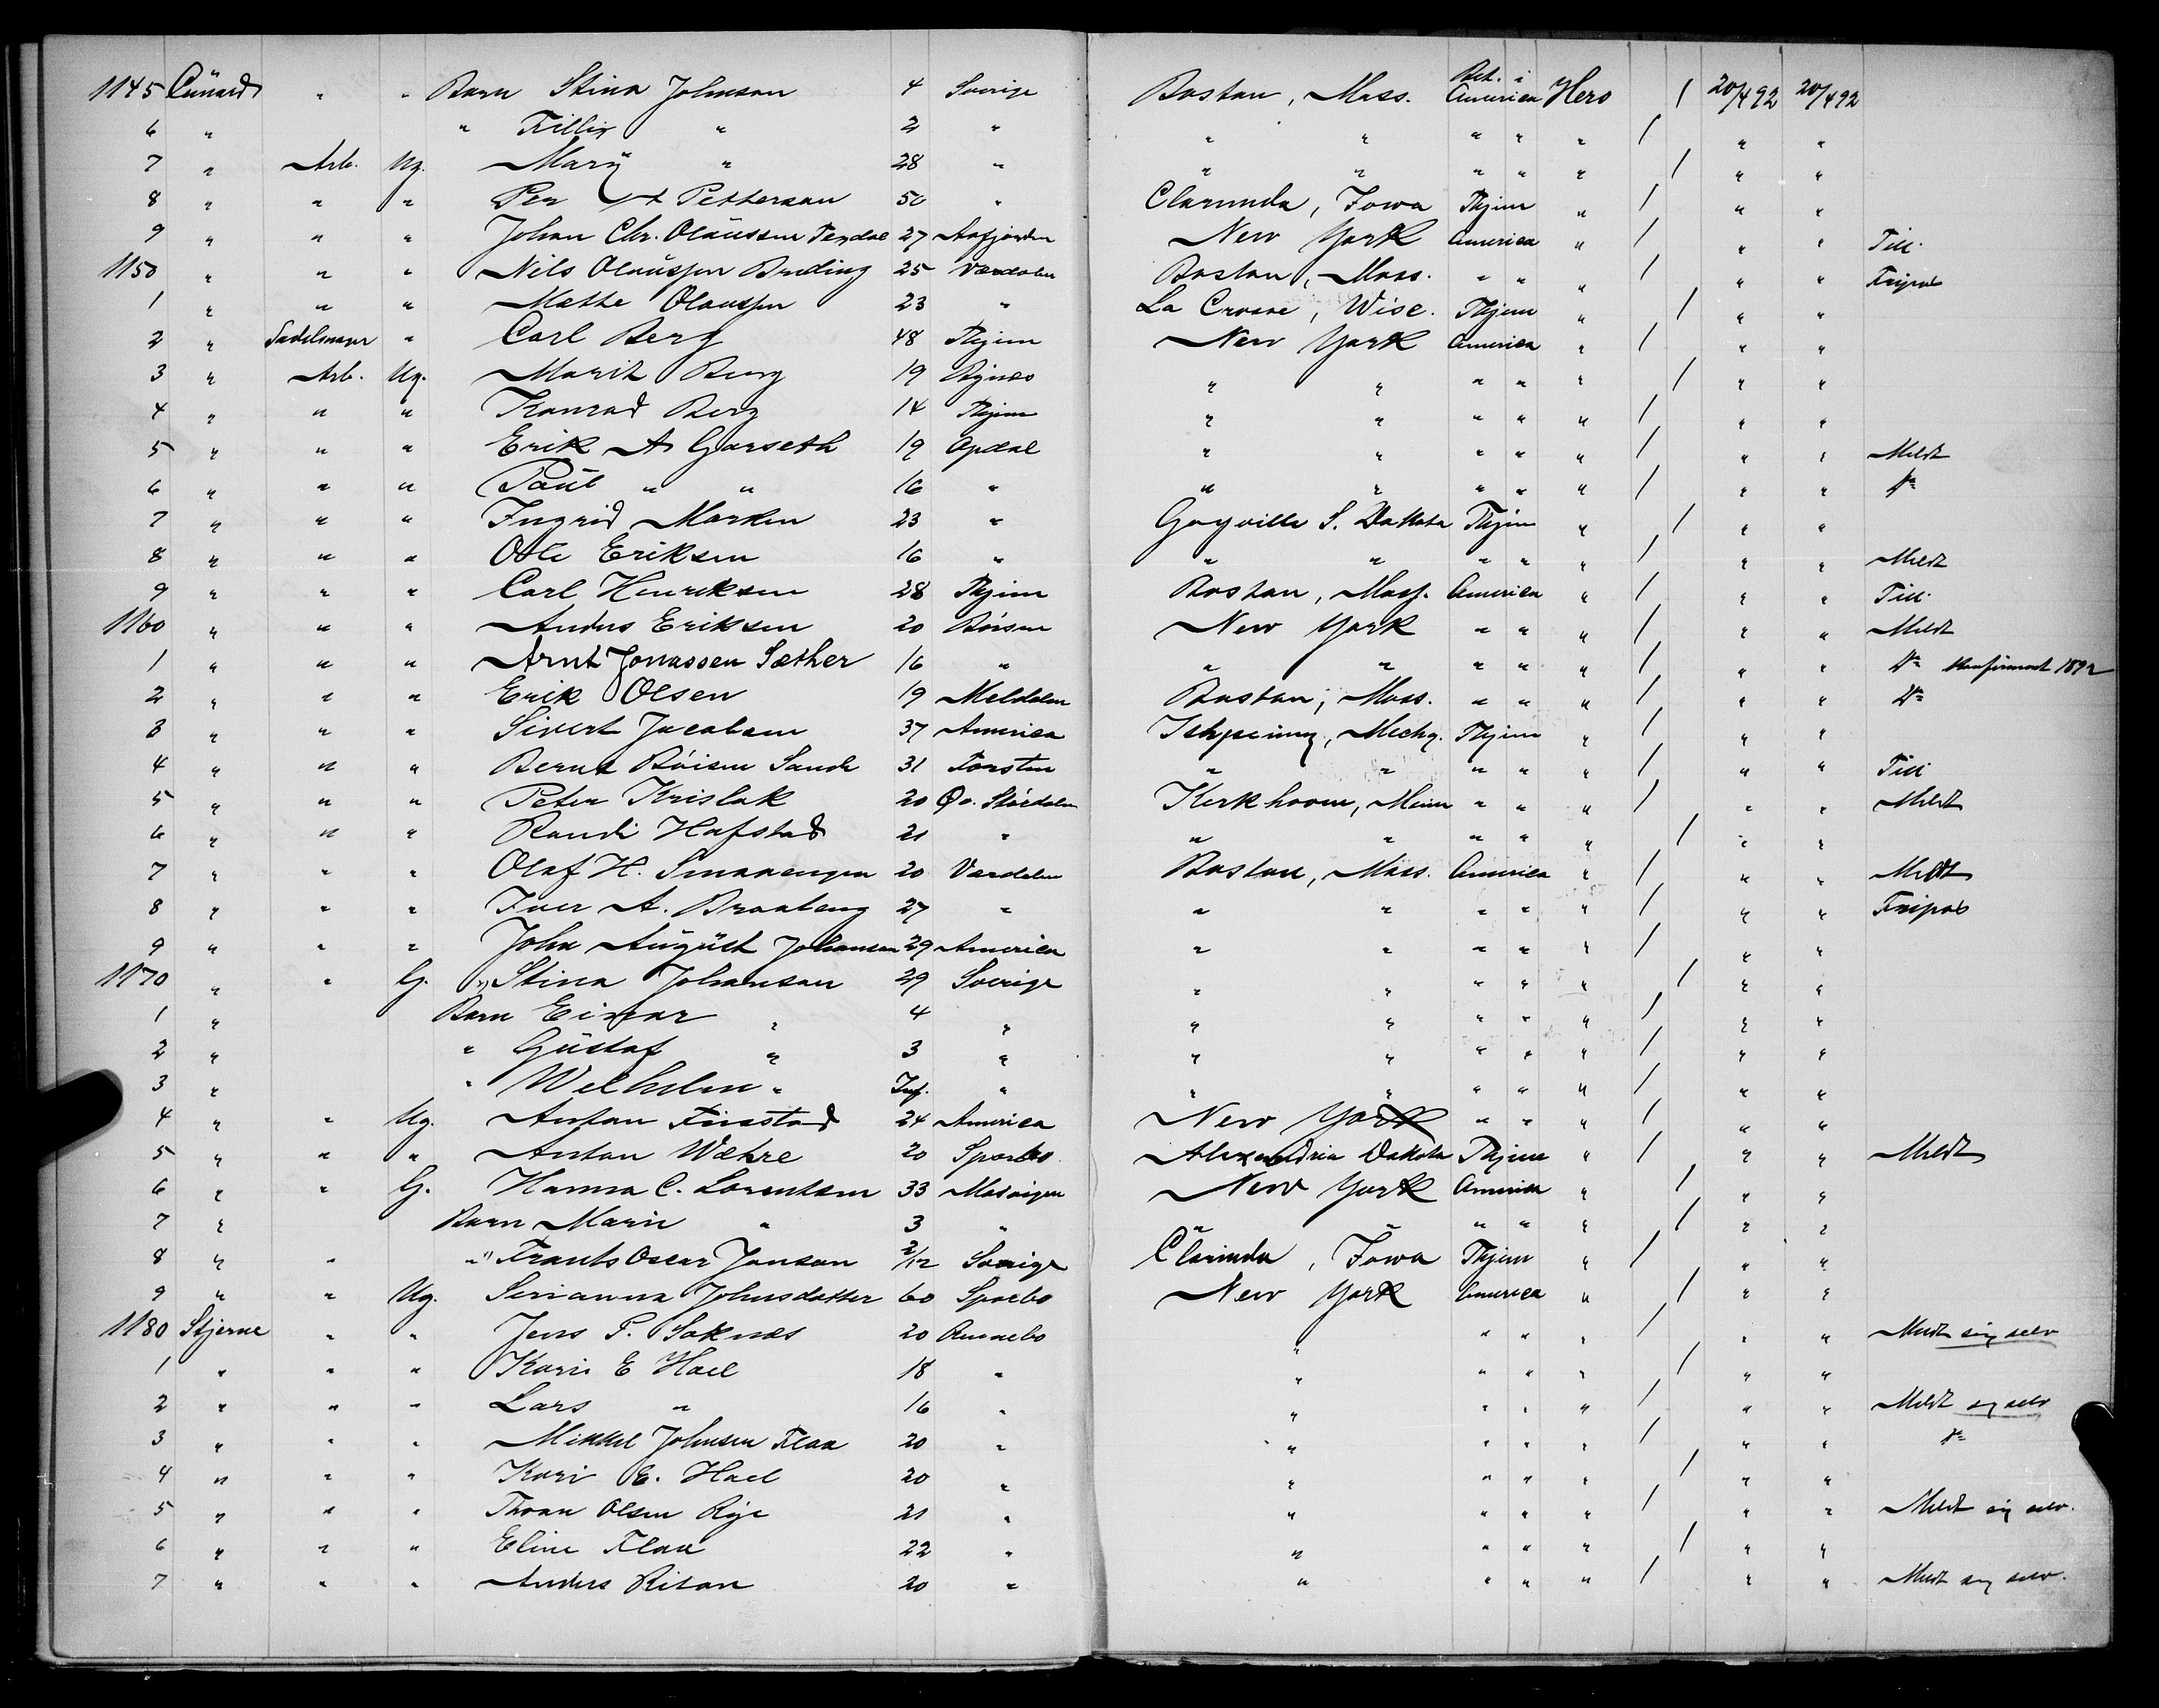 1145 Cunard " " Barn Stina Johnson 4 Sverige Boston, Mass. Bet. i America Hero 1 20/4 92 20/4 92
6 " " Tillir " 2 " " " " " " 1 " "
7 " Arb. Ug. Mary " 28 " " " " " " 1 " "
8 " " " Per Petterson 50 " Clarinda, Iowa Thjem " 1 " "
9 " " " Johan Chr. Olaussen Terdal 27 Aafjorden New York America " 1 " " Till.
1150 " " " Nils Olaussen Breding 25 Værdalen Boston, Mass. " " " 1 " " Fripas
1 " " " Mathe Olaussen 23 " La Crosse, Wisc. Thjem " 1 " "
2 " Sadelmager " Carl Berg 48 Thjem New York America " 1 " "
3 " Arb. Ug. Marit Berg 19 Bynes " " " " " 1 " "
4 " " " Konrad Berg 14 Thjem " " " " " 1 " "
5 " " " Erik A Gorseth 19 Opdal " " " " " 1 " " Meldt
6 " " " Paul " " 16 " " " " " " 1 " " do
7 " " " Ingrid Marken 23 " Gayville S. Dakota Thjem " 1 " "
8 " " " Ole Eriksen 16 " " " " " " 1 " " Meldt
9 " " " Carl Henriksen 28 Thjem Boston, Mass. America " 1 " " Till.
1160 " " " Anders Eriksen 20 Børsen New York " " " 1 " " Meldt
1 " " " Arnt Jonassen Sæther 16 " " " " " " 1 " " do Konfirmert 1892
2 " " " Erik Olsen 19 Meldalen Boston, Mass. " " " 1 " " do
3 " " " Sivert Jacobsen 37 America Ishpeming, Michg. Thjem " 1 " "
4 " " " Bernt Böisen Sande 31 Torsten " " " " " 1 " " Till
5 " " " Peter Krislok 20 Øv. Stördalen Kerkhoven, Minn " " " 1 " " Meldt
6 " " " Randi Hofstad 21 " " " " " " 1 " "
7 " " " Olaf H. Smaaengen 20 Værdalen Boston, Mass. America " 1 " " Meldt
8 " " " Iver A. Brataeng 27 " " " " " " 1 " " Fripas
9 " " " John August Johanson 29 America " " " " " 1 " "
1170 " " G. " Stina Johanson 29 Sverige " " " " " 1 " "
1 " Barn Einar " 4 " " " " " " 1 " "
2 " " Gustaf " 3 " " " " " " 1 " "
3 " " Welhelm " Inf. " " " " " " 1 " "
4 " " Ug. Anton Finstad 24 America New York " " " 1 " "
5 " " " Anton Wæhre 20 Sparbo Alexandria Dakota Thjem " 1 " " Meldt
6 " " G. Hanna C. Lorentsen 33 Mosvigen New York America " 1 " "
7 " Barn Marie " 3 " " " " " " 1 " "
8 " " " Frants Oscar Jonson 2/12 Sverige Clarinda, Iowa Thjem " 1 " "
9 " " Ug. Serianna Johnsdatter 60 Sparbo New York America " 1 " "
1180 Stjerne " " Jens P. Soknæs 20 Rennebo " " " " 1 " " Meldt sig selv
1 " " " Kari E Hoel 18 " " " " " 1 " "
2 " " " Lars " 16 " " " " " 1 " " Meldt sig selv
3 " " " Mikkel Johnsen Flaa 20 " " " " " 1 " " do
4 " " " Kari E. Hoel 20 " " " " " 1 " "
5 " " " Thoan Olsen Rye 21 " " " " " 1 " " Meldt sig selv.
6 " " " Eline Flaa 22 " " " " " 1 " "
7 " " " Anders Ritan 20 " " " " " 1 " " Meldt sig selv.